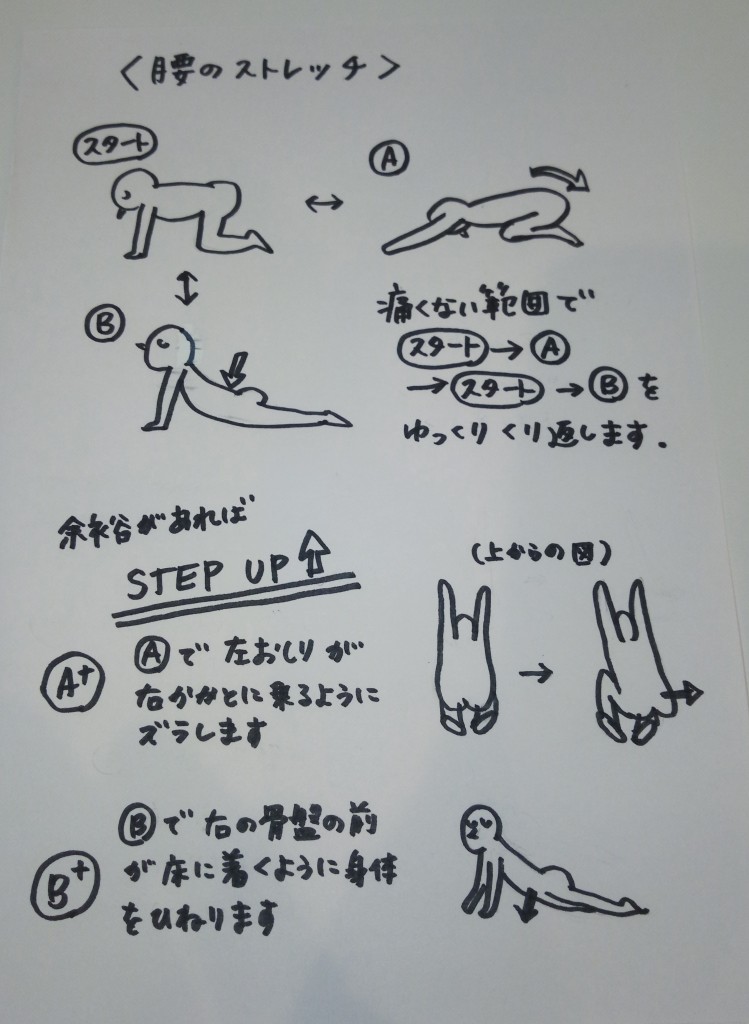 〈腰のストレッチ〉
スタート
A
B
痛くない範囲で
スタート→A
→スタート→Bを
ゆっくりくり返します.
余裕があれば
STEP UP
(上からの図)
A+
Aで左おしりが
右かかとに乗るように
ズラします
B+
Bで右の骨盤の前
が床に着くように身体
をひねります